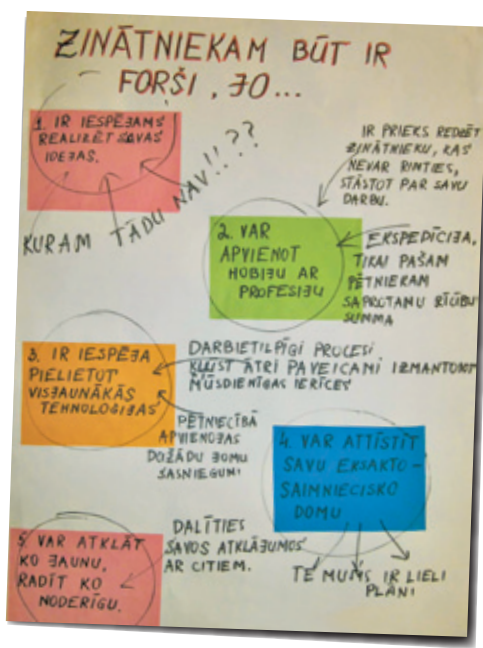 ZINĀTNIEKAM BŪT IR
FORŠI, JO...
1. IR IESPĒJAMS
REALIZĒT SAVAS
IDEJAS.
KURAM TĀDU NAV!!??
IR PRIEKS REDZĒT
ZINĀTNIEKU, KAS
NEVAR RIMTIES,
STĀSTOT PAR SAVU
DARBU.
2. VAR
APVIENOT
HOBIJU AR
PROFESIJU
EKSPEDĪCIJA,
TIKAI PAŠAM
PĒTNIEKAM
SAPROTAMU RĪCĪBU
SUMMA
3. IR IESPĒJA
PIELIETOT
VISJAUNĀKĀS
TEHNOLOĢIJAS
DARBIETILPĪGI PROCESI
KĻŪST ĀTRI PAVEICAMI IZMANTOJOT
MŪSDIENĪGAS IERĪCES
PĒTNIECĪBĀ
APVIENOJAS
DAŽĀDU JOMU
SASNIEGUMI
4. VAR ATTĪSTĪT
SAVU EKSAKTO-
SAIMNIECISKO
DOMU
TE MUMS IR LIELI
PLĀNI
5. VAR ATKLĀT
KO JAUNU,
RADĪT KO
NODERĪGU.
DALĪTIES
SAVOS ATKLĀJUMOS
AR CITIEM.